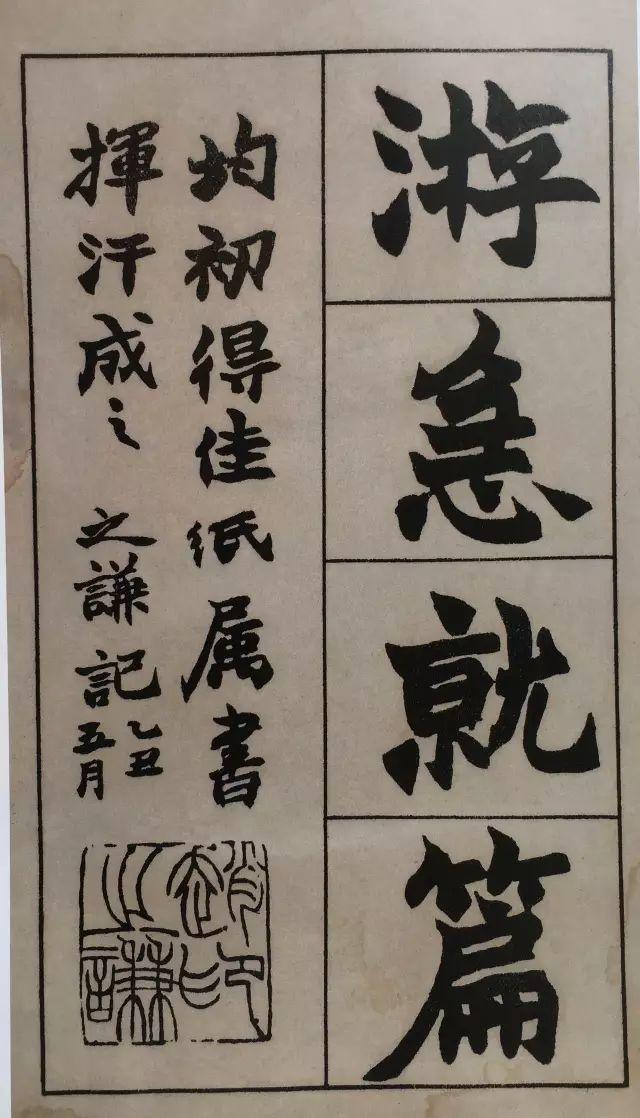 游急就篇
均初得佳紙属書
揮汗成之 之謙記
乙丑
五月
趙之謙印